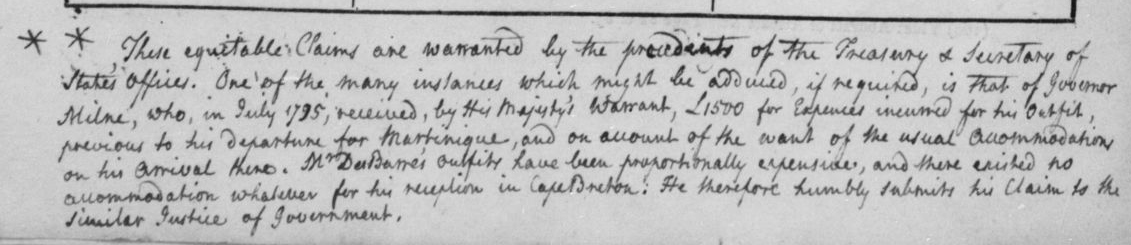 * * These equitable Claims are warranted by the precedents of the Treasury & Secretary of
State's Offices. One of the many instances which might be adduced, if required, is that of Governor
Milne, who, in July 1795, received, by His Majesty's Warrant, £1500 for Expences incurred for his Outfit,
previous to his departure for Martinique, and on account of the want of the usual Accommodations
on his Arrival there. Mr DesBarres outfits have been proportionally expensive, and there existed no
accommodation whatever for his reception in Cape Breton: He therefore humbly submits his Claim to the
similar Justice of Government.